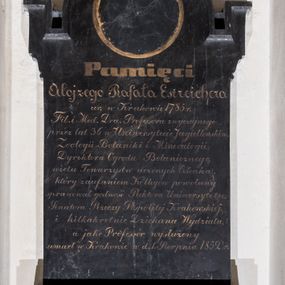 Pamięci
Alojzego Rafała Estreichera
ur. w Krakowie 1786 r.
Fil. i Med. Dra. Profesora zwyczajnego
przez lat 36 w Uniwersytecie Jagiellońskim
Zoologii Botaniki i Mineralogii,
Dyrektora Ogrodu Botanicznego
wielu Towarzystw uczonych Członka,
który zaufaniem Kollegów powołany
sprawował godność Rektora Uniwersytetu
Senatora Rzeczyposplitej Krakowskiej
i kilkakrotnie Dziekana Wydziału,
a jako Profesor wysłużony
umarł w Krakowie w d. 1. Sierpnia 1852 r.